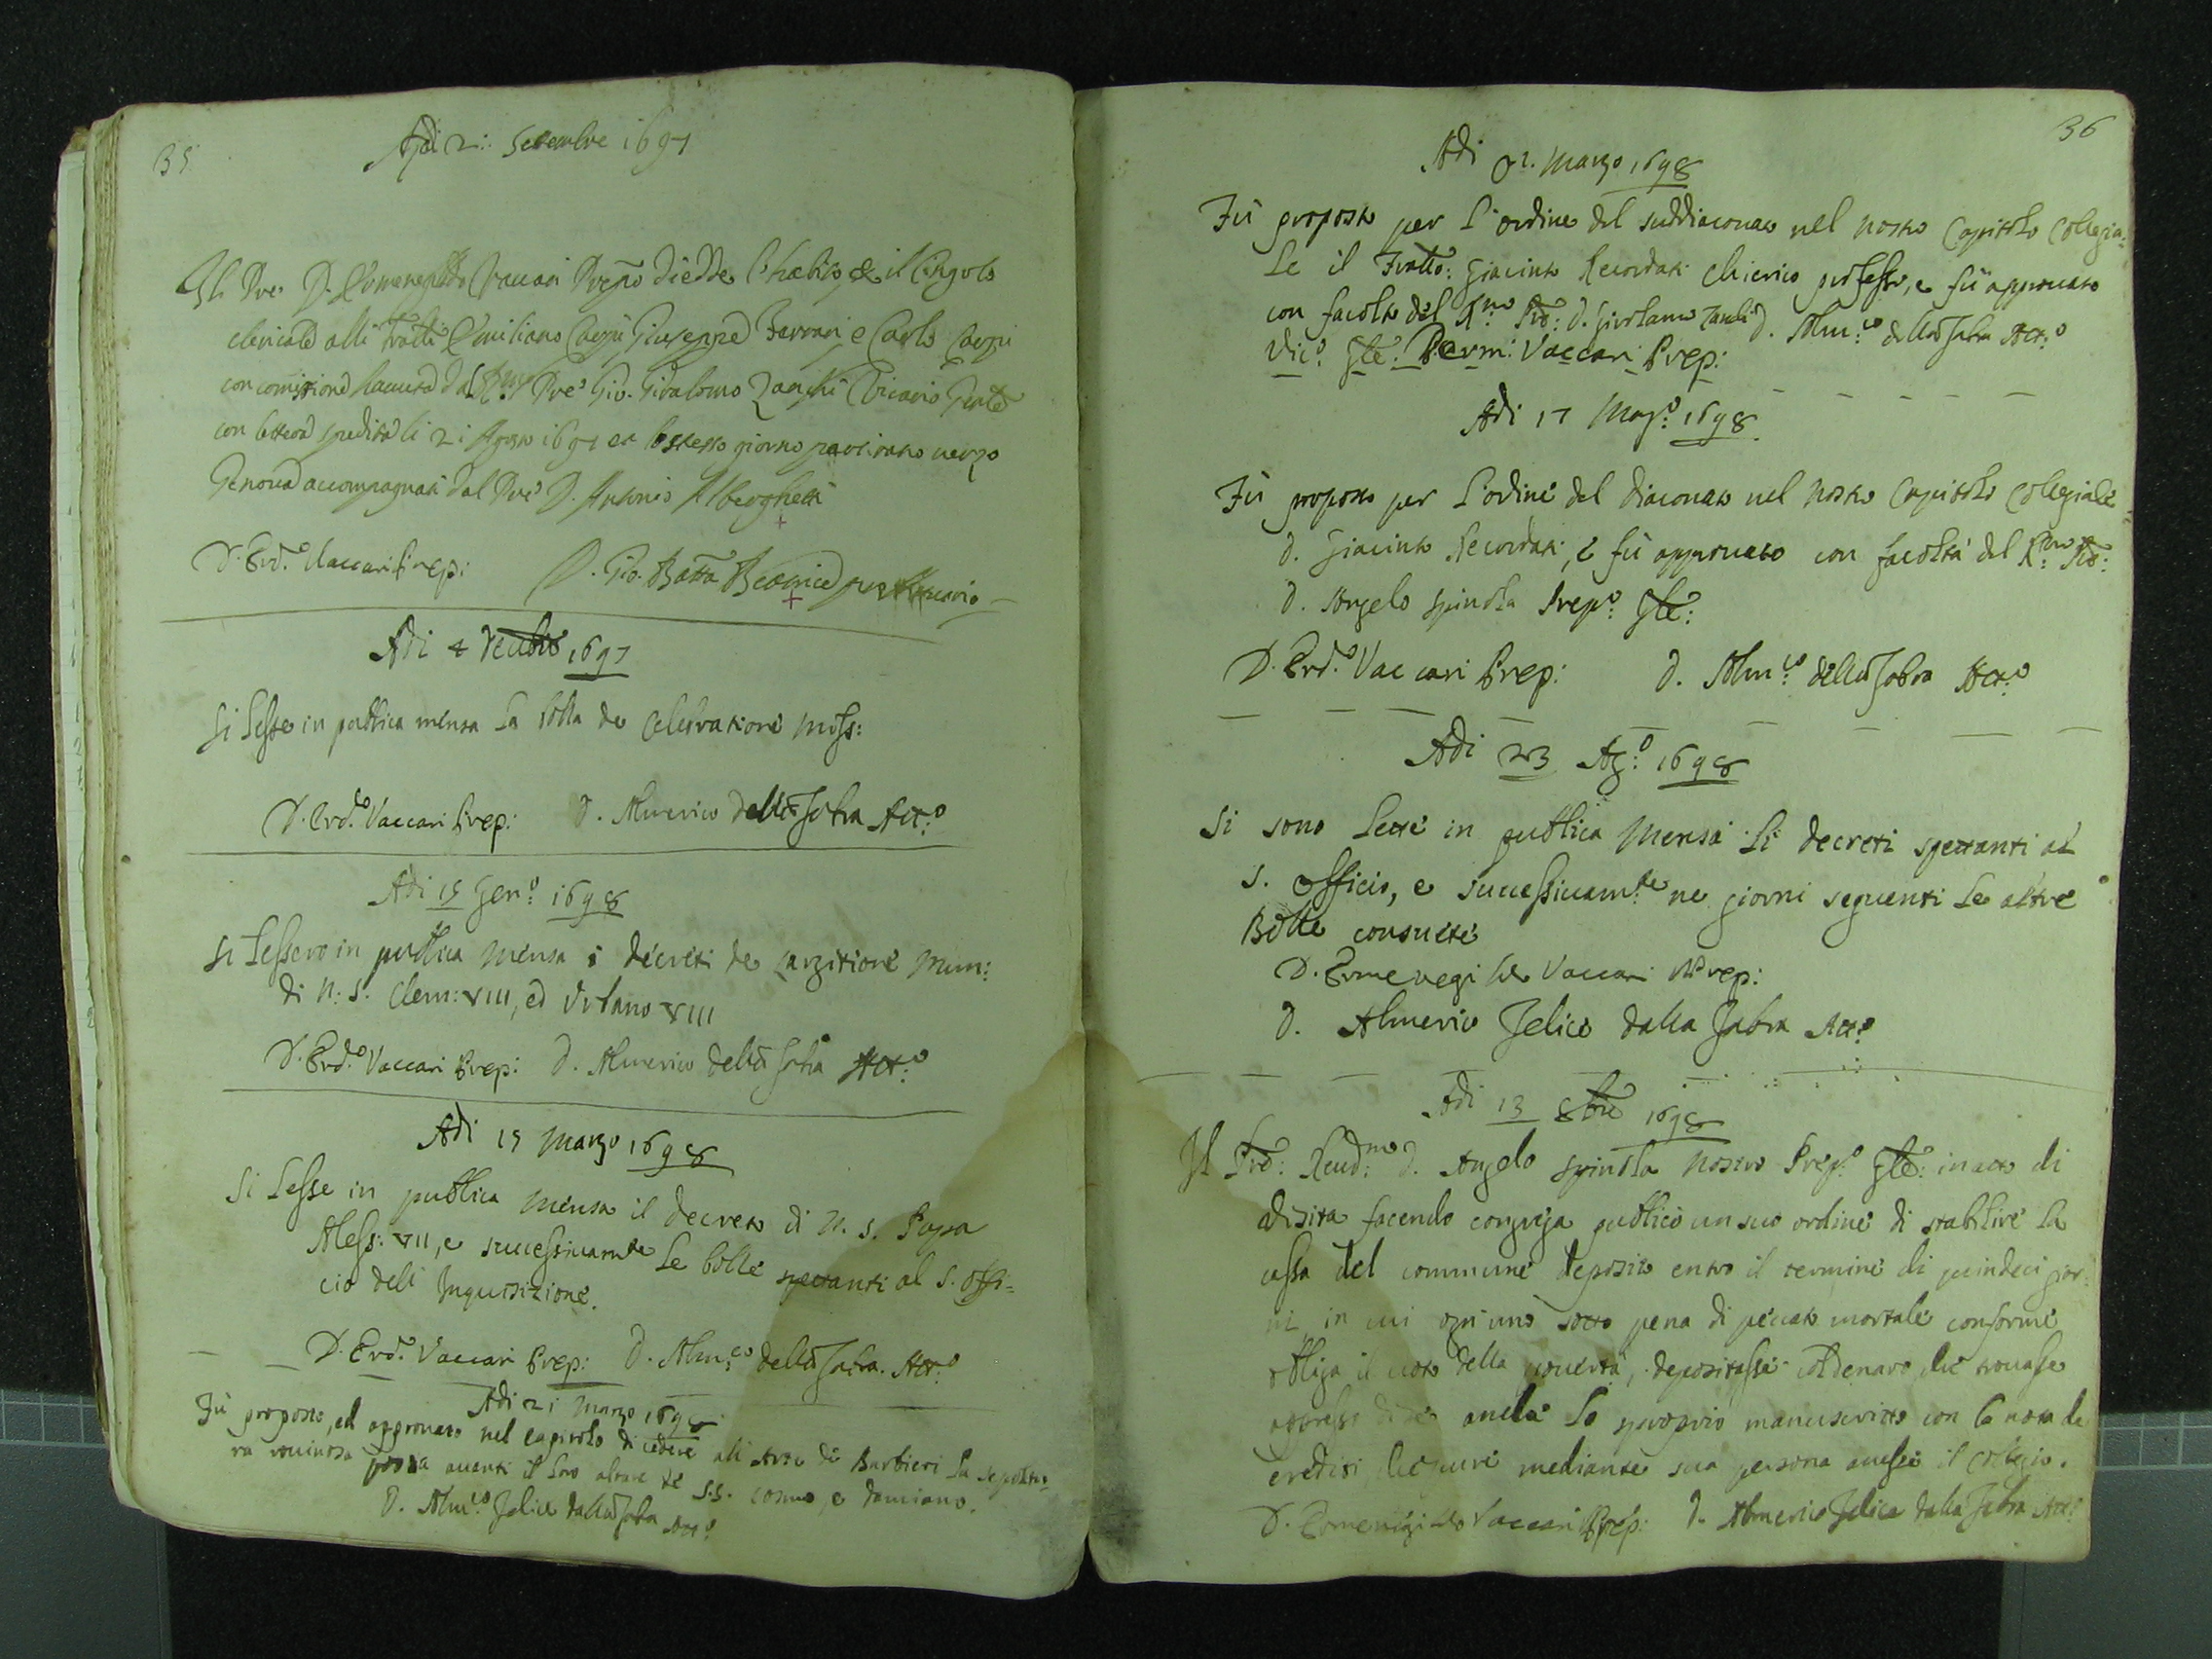 35
Adi 2: Settembre 1697
Il Pre D. Ermenegildo Vaccari Prep.to diedde l'habito, & il Cingolo
clericale alli Fratti Emiliano Carpi Giuseppe Ferrari e Carlo Carpi
con comissione hauuta dal R.mo Pre Gio. Girolamo Zanchi Vicario Gnte
con lettera spedita li 21 Agosto 1697 et lo stesso giorno partirono uerzo
Genoua accompagnati dal Pre D. Antonio Alberghetti
D. Erd.o Vaccari Prep: D. Gio. Batta
Adi 4 Xcembre 1697
Si lesse in publica mensa la bolla de Celebratione Miss:
D. Erd.o Vaccari Prep: D. Almerico della Fabra Att:o
Adi 15 Gen:o 1698
Si lessero in publica mensa i decreti de Largitione Mun:
di N: S. Clem: VIII, ed Vrbano VIII
D. Erd.o Vaccari Prep: D. Almerico della Fabra Att:o
Adi 15 Marzo 1698
Si lesse in publica mensa il decreto di N. S. Papa
Aless: VII, e successiuam.te le bolle spettanti al S. Offi=
cio dell Inquisizione.
D. Erd.o Vaccari Prep: D. Alm:co della Fabra. Att:o
Adi 21 Marzo 1698
Fù proposto, ed approuato nel capitolo di cedere all Arte di Barbieri la sepoltu=
ra uouinosa posta auanti il loro altare de S.S. Cosmo, e Damiano.
D. Alm:co Felice dalla Fabra Att:o
36
Adi 21. Marzo 1698
Fù proposto per l'ordine del suddiaconato nel nostro Capitolo Collegia=
le il Fratto: Giacinto Recordati Chierico professo, e fù approuato
con facoltà del R:mo Pre: D. Girolamo Zanchi D. Alm:co della Fabra Att:o
Vic:o Gle: Perm: Vaccari Prep:
Adi 17 Mag:o 1698
Fù proposto per l'ordine del diaconato nel nostro Capitolo Collegiale
D. Giacinto Recordati, e fù approuato con facoltà del R:mo Pre:
D. Angelo Spinola Prep:o Gle:
D. Erd.o Vaccari Prep: D. Alm:co della Fabra Att:o
Adi 23 Ag:o 1698
Si sono lette in publica mensa li decreti spettanti al
S. Officio, e successiuam:te ne giorni seguenti le altre
Bolle consuete
D. Ermenegildo Vaccari Prep:
D. Almerico Felice dalla Fabra Att:o
Adi 13 8bre 1698
Il Pre: Reud:mo D. Angelo Spinola nostro Prep:o Gle: in atto di
Visita facendo congrega publicò un suo ordine di stabilire la
cassa del commune deposito entro il termine di quindeci gior=
ni in cui ogn'uno sotto pena di peccato mortale conforme
obliga il uoto della pouertà, depositasse il denaro, che trouasse
appresso di sè anche lo proprio manuscritto con la nota de
crediti, che pure mediante sua persona auesse il Collegio.
D. Ermenigildo Vaccari Prep: D. Almerico Felice dalla Fabra Att:o